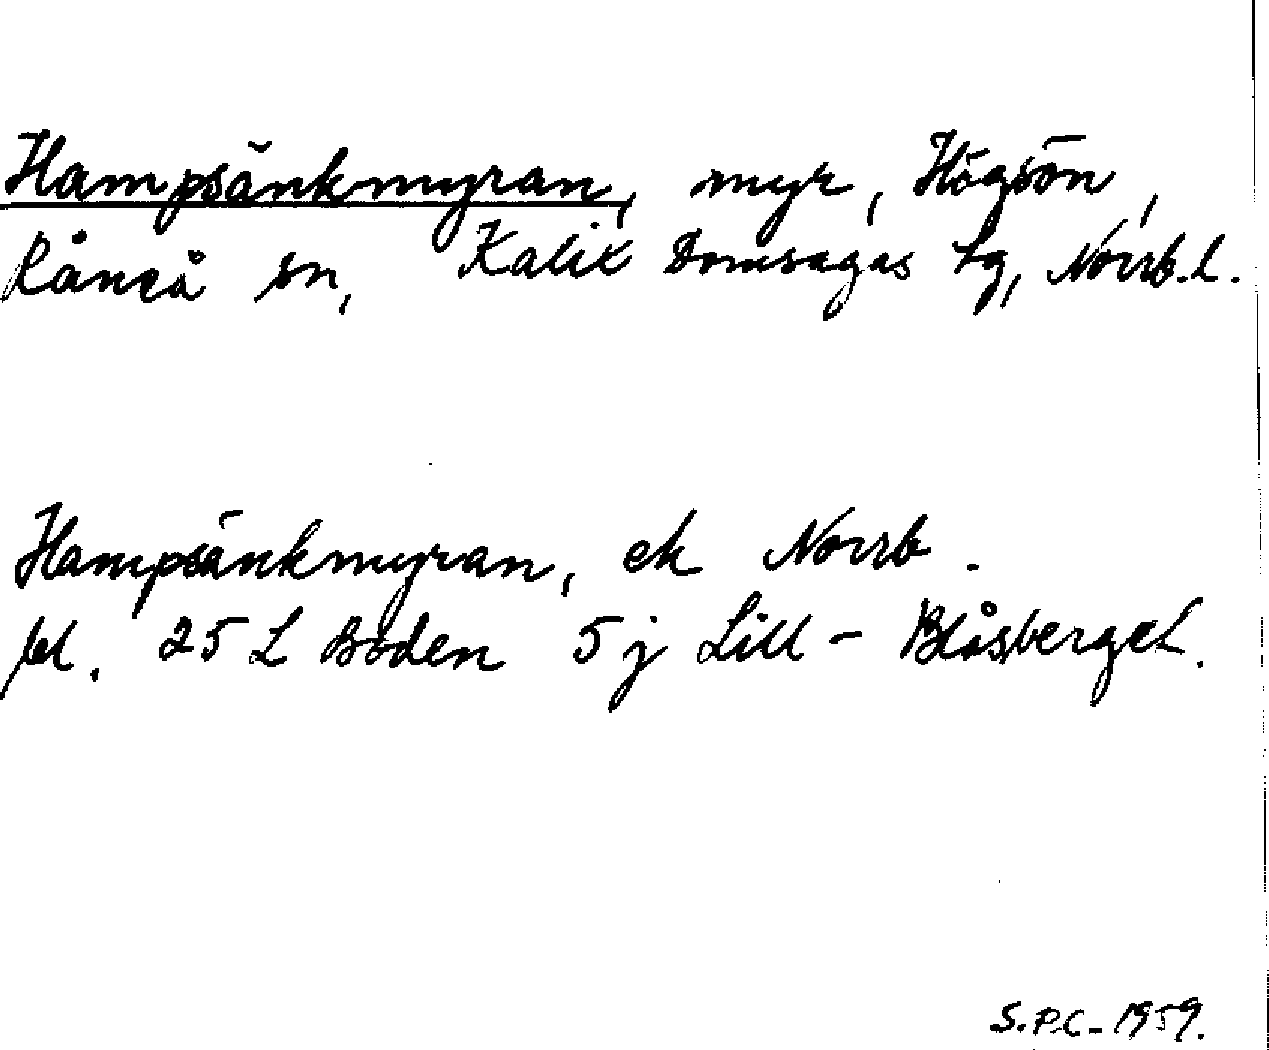 Hampsänkmyran, myr, Högsön,
Råneå sn, Kalix Domsagas tg, Norrb.l.
Hampsänkmyran, ek Norrb.
bl. 25 L Boden 5 j Lill-Blåsberget.
S.P.C-1959.